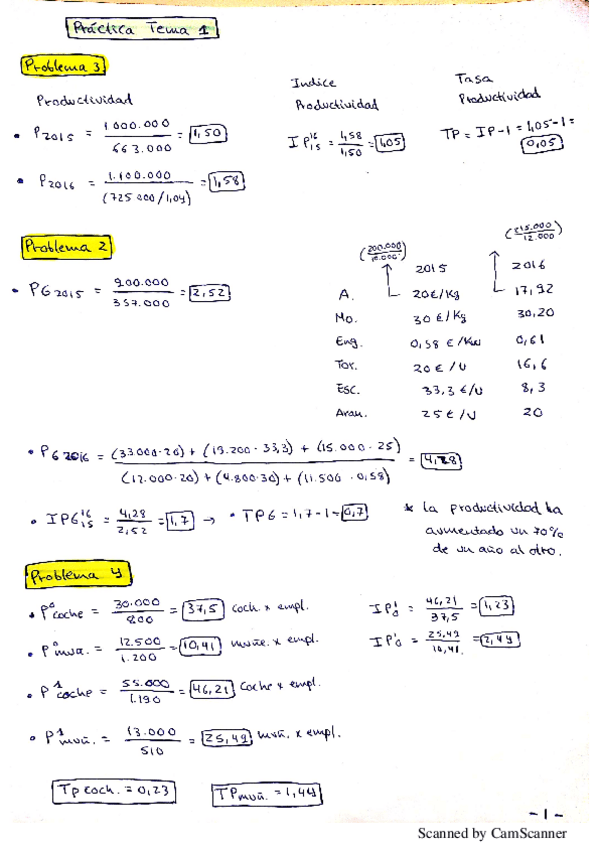 Práctica Tema 1
Problema 3
Productividad
Indice Productividad
Tasa Productividad
• P2015 = 1000.000 / 663.000 = 1,50
IP 16/15 = 1,58 / 1,50 = 1,05
TP = IP-1 = 1,05-1 = 0,05
• P2016 = 1.100.000 / (725000/1,04) = 1,58
Problema 2
• PG2015 = 900.000 / 357.000 = 2,52
(200.000 / 10.000)
(215.000 / 12.000)
2015 2016
A. 20€/Kg 17,92
Mo. 30 €/Kg 30,20
Eng. 0,58 €/Kw 0,61
Tor. 20 € /U 16,6
Esc. 33,3 €/U 8,3
Aran. 25 € /U 20
• PG2016 = (33000·20) + (19.200·33,3) + (15.000·25) / (12.000·20) + (4.800·30) + (11.500·0,58) = 4,28
• IPG 16/15 = 4,28 / 2,52 = 1,7 → • TPG = 1,7-1 = 0,7
* La productividad ha
aumentado un 70%
de un año al otro.
Problema 4
• P°coche = 30.000 / 800 = 37,5 coch. x empl.
IP 1/0 = 46,21 / 37,5 = 1,23
• P°muñ. = 12.500 / 1.200 = 10,41 muñe. x empl.
IP 1/0 = 25,49 / 10,41 = 2,44
• P1coche = 55.000 / 1.190 = 46,21 coche x empl.
• P1muñ. = 13.000 / 510 = 25,49 muñ. x empl.
Tp coch. = 0,23
TPmuñ. = 1,44
-1-
Scanned by CamScanner